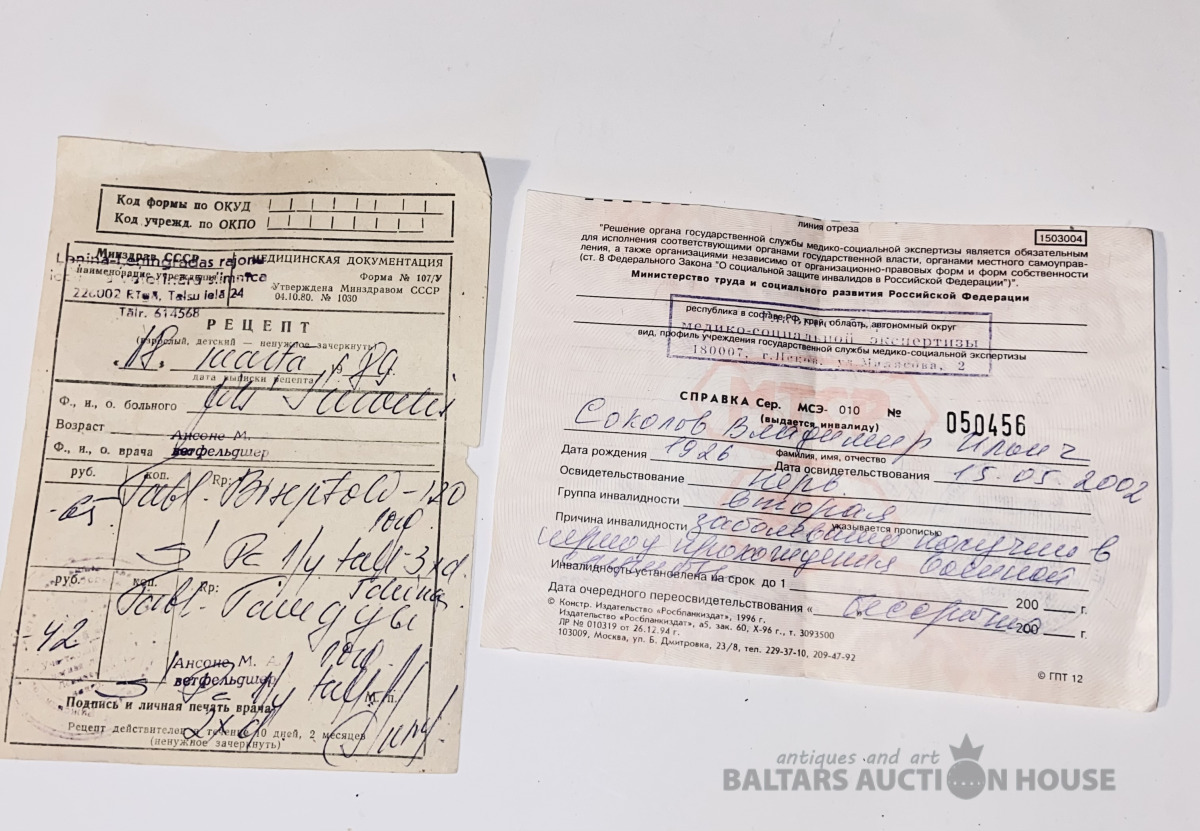 Код формы по ОКУД
Код учрежд. по ОКПО
Минздрав СССР
наименование учреждения
Ļeņina-Ļeņingradas rajonu
slimnīca
226002 Rīgā, Talsu ielā 24
Tālr. 614568
МЕДИЦИНСКАЯ ДОКУМЕНТАЦИЯ
Форма № 107/У
Утверждена Минздравом СССР
04.10.80. № 1030
РЕЦЕПТ
(взрослый, детский — ненужное зачеркнуть)
„18„ marta 89
дата выписки рецепта
Ф., и., о. больного
Возраст
Ф., и., о. врача
Ансоне М.
ветфельдшер
руб. коп. Rp:
-65 Tabl. Biseptoli-120
S!
руб. коп. Rp:
Tabl.
-42
Ансоне М. А.
ветфельдшер
S
Подпись и личная печать врача М. п.
2xd
Рецепт действителен в течение 10 дней, 2 месяцев
(ненужное зачеркнуть)
линия отреза
1503004
"Решение органа государственной службы медико-социальной экспертизы является обязательным
для исполнения соответствующими органами государственной власти, органами местного самоуправ-
ления, а также организациями независимо от организационно-правовых форм и форм собственности
(ст. 8 Федерального Закона "О социальной защите инвалидов в Российской Федерации")".
Министерство труда и социального развития Российской Федерации
республика в составе РФ, край, область, автономный округ
медико-социальной экспертизы
вид, профиль учреждения государственной службы медико-социальной экспертизы
180007, г. Псков, ул. Малясова, 2
СПРАВКА Сер. МСЭ- 010 № 050456
(выдается инвалиду)
Соколов Владимир Ильич
фамилия, имя, отчество
Дата рождения 1926 Дата освидетельствования 15.05.2002
Освидетельствование перв.
Группа инвалидности вторая
указывается прописью
Причина инвалидности заболевание получено в
период прохождения военной
службы
Инвалидность установлена на срок до 1 200 г.
Дата очередного переосвидетельствования « » бессрочно 200 г.
© Констр. Издательство «Росбланкиздат», 1996 г.
Издательство «Росбланкиздат», а5, зак. 60, X-96 г., т. 3093500
ЛР № 010319 от 26.12.94 г.
103009, Москва, ул. Б. Дмитровка, 23/8, тел. 229-37-10, 209-47-92
© ГПТ 12
antiques and art
BALTARS AUCTION HOUSE